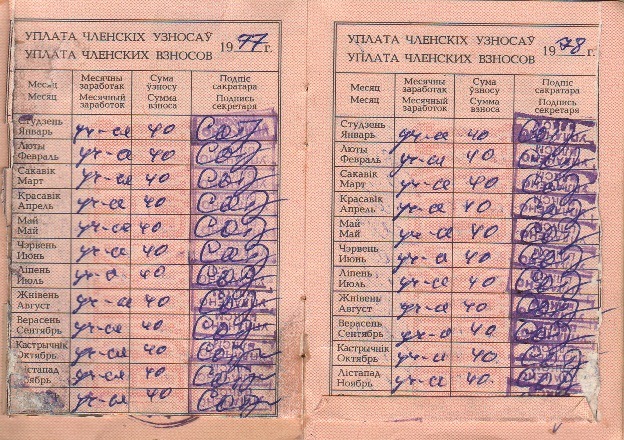 УПЛАТА ЧЛЕНСКІХ УЗНОСАЎ
УПЛАТА ЧЛЕНСКИХ ВЗНОСОВ
1977 г.
Месяц Месячны заработак Сума ўзносу Подпіс сакратара
Месяц Месячный заработок Сумма взноса Подпись секретаря
Студзень
Январь уч-ся 40
Люты
Февраль уч-ся 40
Сакавік
Март уч-ся 40
Красавік
Апрель уч-ся 40
Май
Май уч-ся 40
Чэрвень
Июнь уч-ся 40
Ліпень
Июль уч-ся 40
Жнівень
Август уч-ся 40
Верасень
Сентябрь уч-ся 40
Кастрычнік
Октябрь уч-ся 40
Лістапад
Ноябрь уч-ся 40
уч-ся 40
УПЛАТА ЧЛЕНСКІХ УЗНОСАЎ
УПЛАТА ЧЛЕНСКИХ ВЗНОСОВ
1978 г.
Месяц Месячны заработак Сума ўзносу Подпіс сакратара
Месяц Месячный заработок Сумма взноса Подпись секретаря
Студзень
Январь уч-ся 40
Люты
Февраль уч-ся 40
Сакавік
Март уч-ся 40
Красавік
Апрель уч-ся 40
Май
Май уч-ся 40
Чэрвень
Июнь уч-ся 40
Ліпень
Июль уч-ся 40
Жнівень
Август уч-ся 40
Верасень
Сентябрь уч-ся 40
Кастрычнік
Октябрь уч-ся 40
Лістапад
Ноябрь уч-ся 40